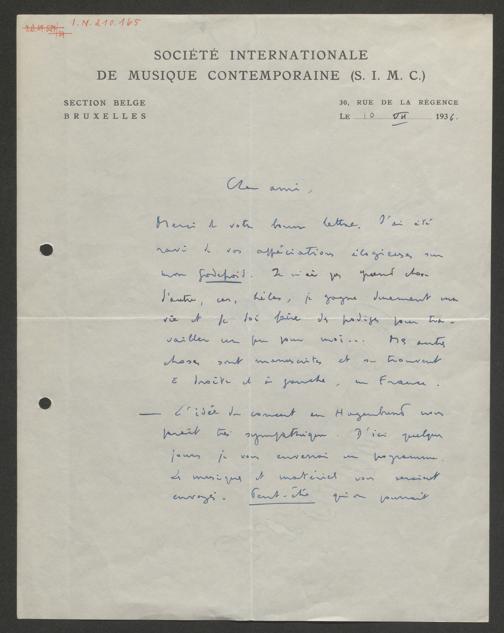 I.N. 210.165
SOCIÉTÉ INTERNATIONALE
DE MUSIQUE CONTEMPORAINE (S. I. M. C.)
SECTION BELGE
BRUXELLES
30, RUE DE LA RÉGENCE
LE 10 VII 1936.
Cher ami,
Merci de votre bonne lettre. J'ai été
ravi de vos appréciations élogieuses sur
mon Godefroid. Je n'ai pas grand chose
d'autre, car, hélas, je gagne durement ma
vie et je dois faire des prodiges pour tra-
vailler un peu pour moi... Mes autres
choses sont manuscrites et se trouvent
à droite et à gauche, en France.
— L'idée du concert en Hagenbund nous
paraît très sympathique. D'ici quelques
jours je vous enverrai un programme.
La musique et matériel vous seraient
envoyés. Peut-être qu'on pourrait